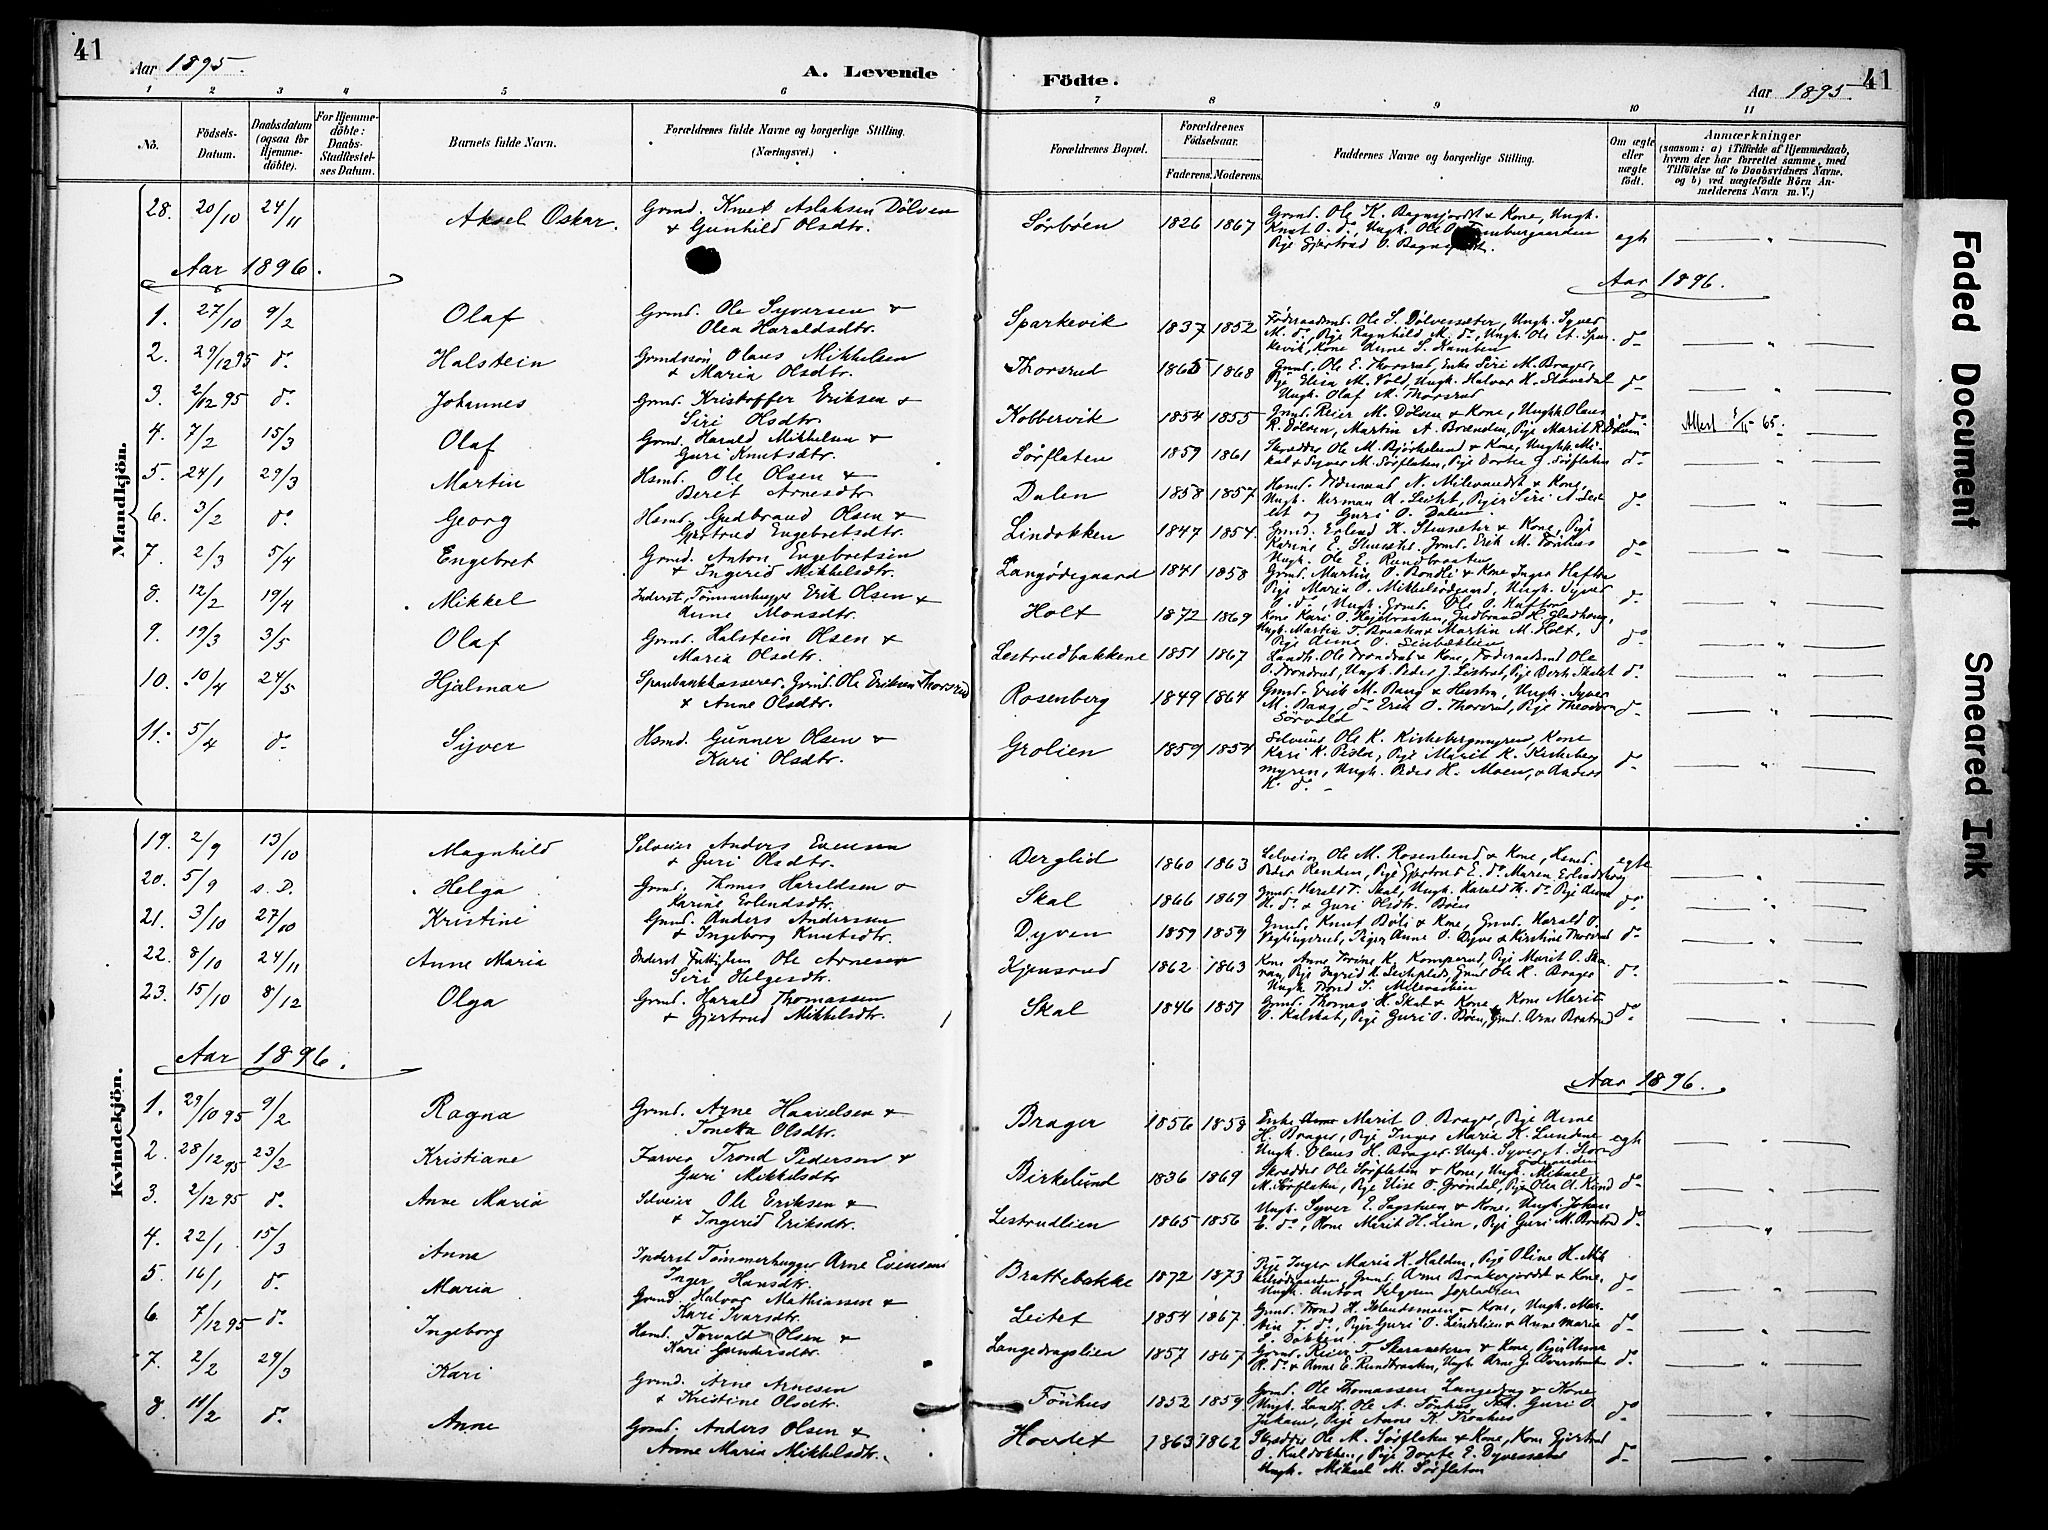 41
Aar 1895.
A. Levende
Födte.
Aar 1895.
41
1 2 3 4 5 6 7 8 9 10 11
No.
Födsels-Datum.
Daabsdatum (ogsaa for Hjemmedöbte).
For Hjemmedöbte: Daabs-Stadfæstelses Datum.
Barnets fulde Navn.
Forældrenes fulde Navne og borgerlige Stilling. (Næringsvei.)
Forældrenes Bopæl.
Forældrenes Födselsaar.
Faderens. Moderens.
Faddernes Navne og borgerlige Stilling.
Om ægte eller uægte födt.
Anmærkninger
(saasom: a) i Tilfælde af Hjemmedaab, hvem der har forrettet samme, med Tilföielse af to Daabsvidners Navne, og b) ved uægtefödte Börn Anmelderens Navn m. V.)
Mandkjön.
28. 20/10 24/11 Aksel Oskar. Grmd. Knut Aslaksen Dölven & Gunhild Olsdtr. Sörböen 1826 1867 Grmd. Ole K. Bagnsjordet & Kone, Ungh. Knut O. do, Ungh. Ole O. Pige Gjertrud O. egte
Aar 1896.
Aar 1896.
1. 27/10 9/2 Olaf Grmd. Ole Syversen & Olea Haraldsdtr. Sparkevik 1837 1852 Föderaadsmd. Ole S. Dölvesæter, Ungh. Syver M. do, Pige Ragnhild M. do, Ungh. Ole A. Sparkevik, Kone Anne S. do
2. 29/12 95 do Halstein Grmdssön Olaus Mikkelsen & Maria Olsdtr. Thorsrud 1865 1868 Grmd. Ole E. Thorsrud, Enke Siri M. Brager, Pige Elisa M. Vold, Ungh. Halvor K. Ungh. Olaf M. Thorsrud do
3. 2/12 95 do Johannes Grmd. Kristoffer Eriksen & Siri Olsdtr. Kobbervik 1854 1855 Grmd. Reier M. Dölven & Kone, Ungh. Olaus R. Dölven, Martin A. Brænden, Pige Marit R. Dölven do
4. 7/2 15/3 Olaf Grmd. Harald Mikkelsen & Guri Knutsdtr. Sörflaten 1859 1861 Skrædder Ole M. Björkelund & Kone, Ungh. Mikal & Syver M. Sörflaten, Pige Dortea J. Sörflaten do
5. 24/1 29/3 Martin Hsmd. Ole Olsen & Berit Arnesdtr. Dalen 1858 1857 Guri O. Dalen do
6. 3/2 do Georg Hsmd. Gudbrand Olsen & Gjertrud Engebretsdtr. Lindokken 1847 1854 Grmd. Erlend K. Stensæter & Kone, Pige Karine E. Stensæter, Grmd. Erik M. Fönhus Ungh. Ole E. Rundbraaten do
7. 2/3 5/4 Engebret Grmd. Anton Engebretsen & Ingerid Mikkelsdtr. Langödegaard 1841 1858 Grmd. Martin O. Bondli & Kone Inger Haftor Pige Maria O. Mikkelsödegaard, Ungh. Syver O. do, Ungh. Grmd. Ole O. Haftor do
8. 12/2 19/4 Mikkel Inderst Tömmerhugger Erik Olsen & Anne Monsdtr. Holt 1872 1869 Kone Kari O. Ungh. Martin T. Braaten & Martin M. Holt, Pige Anne O. do
9. 19/3 3/5 Olaf Grmd. Halstein Olsen & Maria Olsdtr. Lestrudbakkene 1851 1867 Landh. Ole Trondrud & Kone, Föderaadsmd Ole O. Trondrud, Ungh. Peder J. Lestrud, Pige Berit Skalet do
10. 10/4 24/5 Hjalmar Sparebankkasserer, Grmd. Ole Eriksen Thorsrud & Anne Olsdtr. Rosenberg 1849 1864 Grmd. Erik M. Bang & Hustru, Ungh. Syver M. Bang, do Erik O. Thorsrud, Pige Theodora Sörvold do
11. 5/4 do Syver Hsmd. Gunner Olsen & Kari Olsdtr. Grolien 1859 1854 Selveier Ole K. Kirkebergmyren, Kone Kari K. Pesla, Pige Marit K. Kirkebergmyren, Ungh. Peder H. Moen, & Anders K. do do
Kvindekjön.
19. 2/9 13/10 Magnhild Selveier Anders Evensen & Guri Olsdtr. Berglid 1860 1863 Selveier Ole M. Rosenlund & Kone, Hsmd. Peder Renden, Pige Gjertrud E. do Maren egte
20. 5/9 s. D. Helga Grmd. Thomas Haraldsen & Karine Erlendsdtr. Skal 1866 1869 Grmd. Harald T. Skal, Ungh. Harald Th. do Pige Anna H. do & Guri Olsdtr. Böen do
21. 3/10 27/10 Kristine Grmd. Anders Andersen & Ingeborg Knutsdtr. Dyven 1859 1859 Grmd. Knut Böli & Kone, Grmd. Harald O. Piger Anne O. Dyve & Kirstine Thorsrud do
22. 8/10 24/11 Anne Maria Inderst Fattiglem Ole Arnesen Siri Helgesdtr. Kjensrud 1862 1863 Kone Anne Torine K. Komperud, Pige Marit O. Pige Ingrid K. Grmd Ole K. Brager Ungh. Trond S. do
23. 15/10 8/12 Olga Grmd. Harald Thomassen & Gjertrud Mikkelsdtr. Skal 1846 1851 Grmd. Thomas H. Skal & Kone, Kone Marit O. Kalskat, Pige Guri O. Böen, Grmd. Arne Bratrud do
Aar 1896.
Aar 1896.
1. 29/10 95 9/2 Ragna Grmd. Arne Haavelsen & Tonetta Olsdtr. Brager 1856 1858 Enke Marit O. Brager, Pige Anne H. Brager, Pige Inger Maria K. Lundene Ungh. Olaus H. Brager, Ungh. Syver A. egte
2. 28/12 95 23/2 Kristiane Farver Trond Pedersen & Guri Mikkelsdtr Birkelund 1836 1869 Skrædder Ole Sörflaten & Kone, Ungh. Mikael M. Sörflaten, Pige Elise O. Gröndal, Pige Olea A. Rind do
3. 2/12 95 do Anne Maria Selveier Ole Eriksen & & Ingerid Eriksdtr. Lestrudlien 1865 1856 Ungh. Syver E. & Kone, Ungh. Johan E. do, Kone Marit H. Lien, Pige Guri M. Bratrud do
4. 22/1 15/3 Anna Inderst Tömmerhugger Arne Evensen Inger Hansdtr. Brattebakke 1872 1873 Pige Inger Maria K. Halden, Pige Oline H. Grmd. Arne & Kone, Ungh. Anton Helgesen do
5. 16/1 do Maria Grmd. Halvor Mathiassen & Kari Ivarsdtr. Leitet 1854 1867 Grmd. Trond H. Islandsmoen & Kone, Ungh. Martin T. do, Piger Guri O. Lindelien & Anne Maria S. Dokken do
6. 7/12 95 do Ingeborg Hsmd. Torvald Olsen & Kari Gundersdtr. Langedragslien 1857 1867 Grmd. Reier T. Skaransæteren & Kone, Piger Anna R. do & Anne E. Rundbraaten, Ungh. Arne G. do
7. 2/2 29/3 Kari Grmd. Arne Arnesen & Kristine Olsdtr. Fönhus 1852 1859 Grmd. Ole Thomassen Langedrag & Kone Ungh. Landh. Ole A. Fönhus, Guri O. Pige Anne K. Fönhus do
8. 11/2 do Anne Grmd. Anders Olsen & Anne Maria Mikkelsdtr. Hovdet 1863 1862 Skrædder Ole M. Sörflaten & Kone, Kone Gjertrud O. Kuldokken, Pige Dorte E. Dyvesæter Ungh. Mikael M. Sörflaten do
Faded Document
Smeared Ink